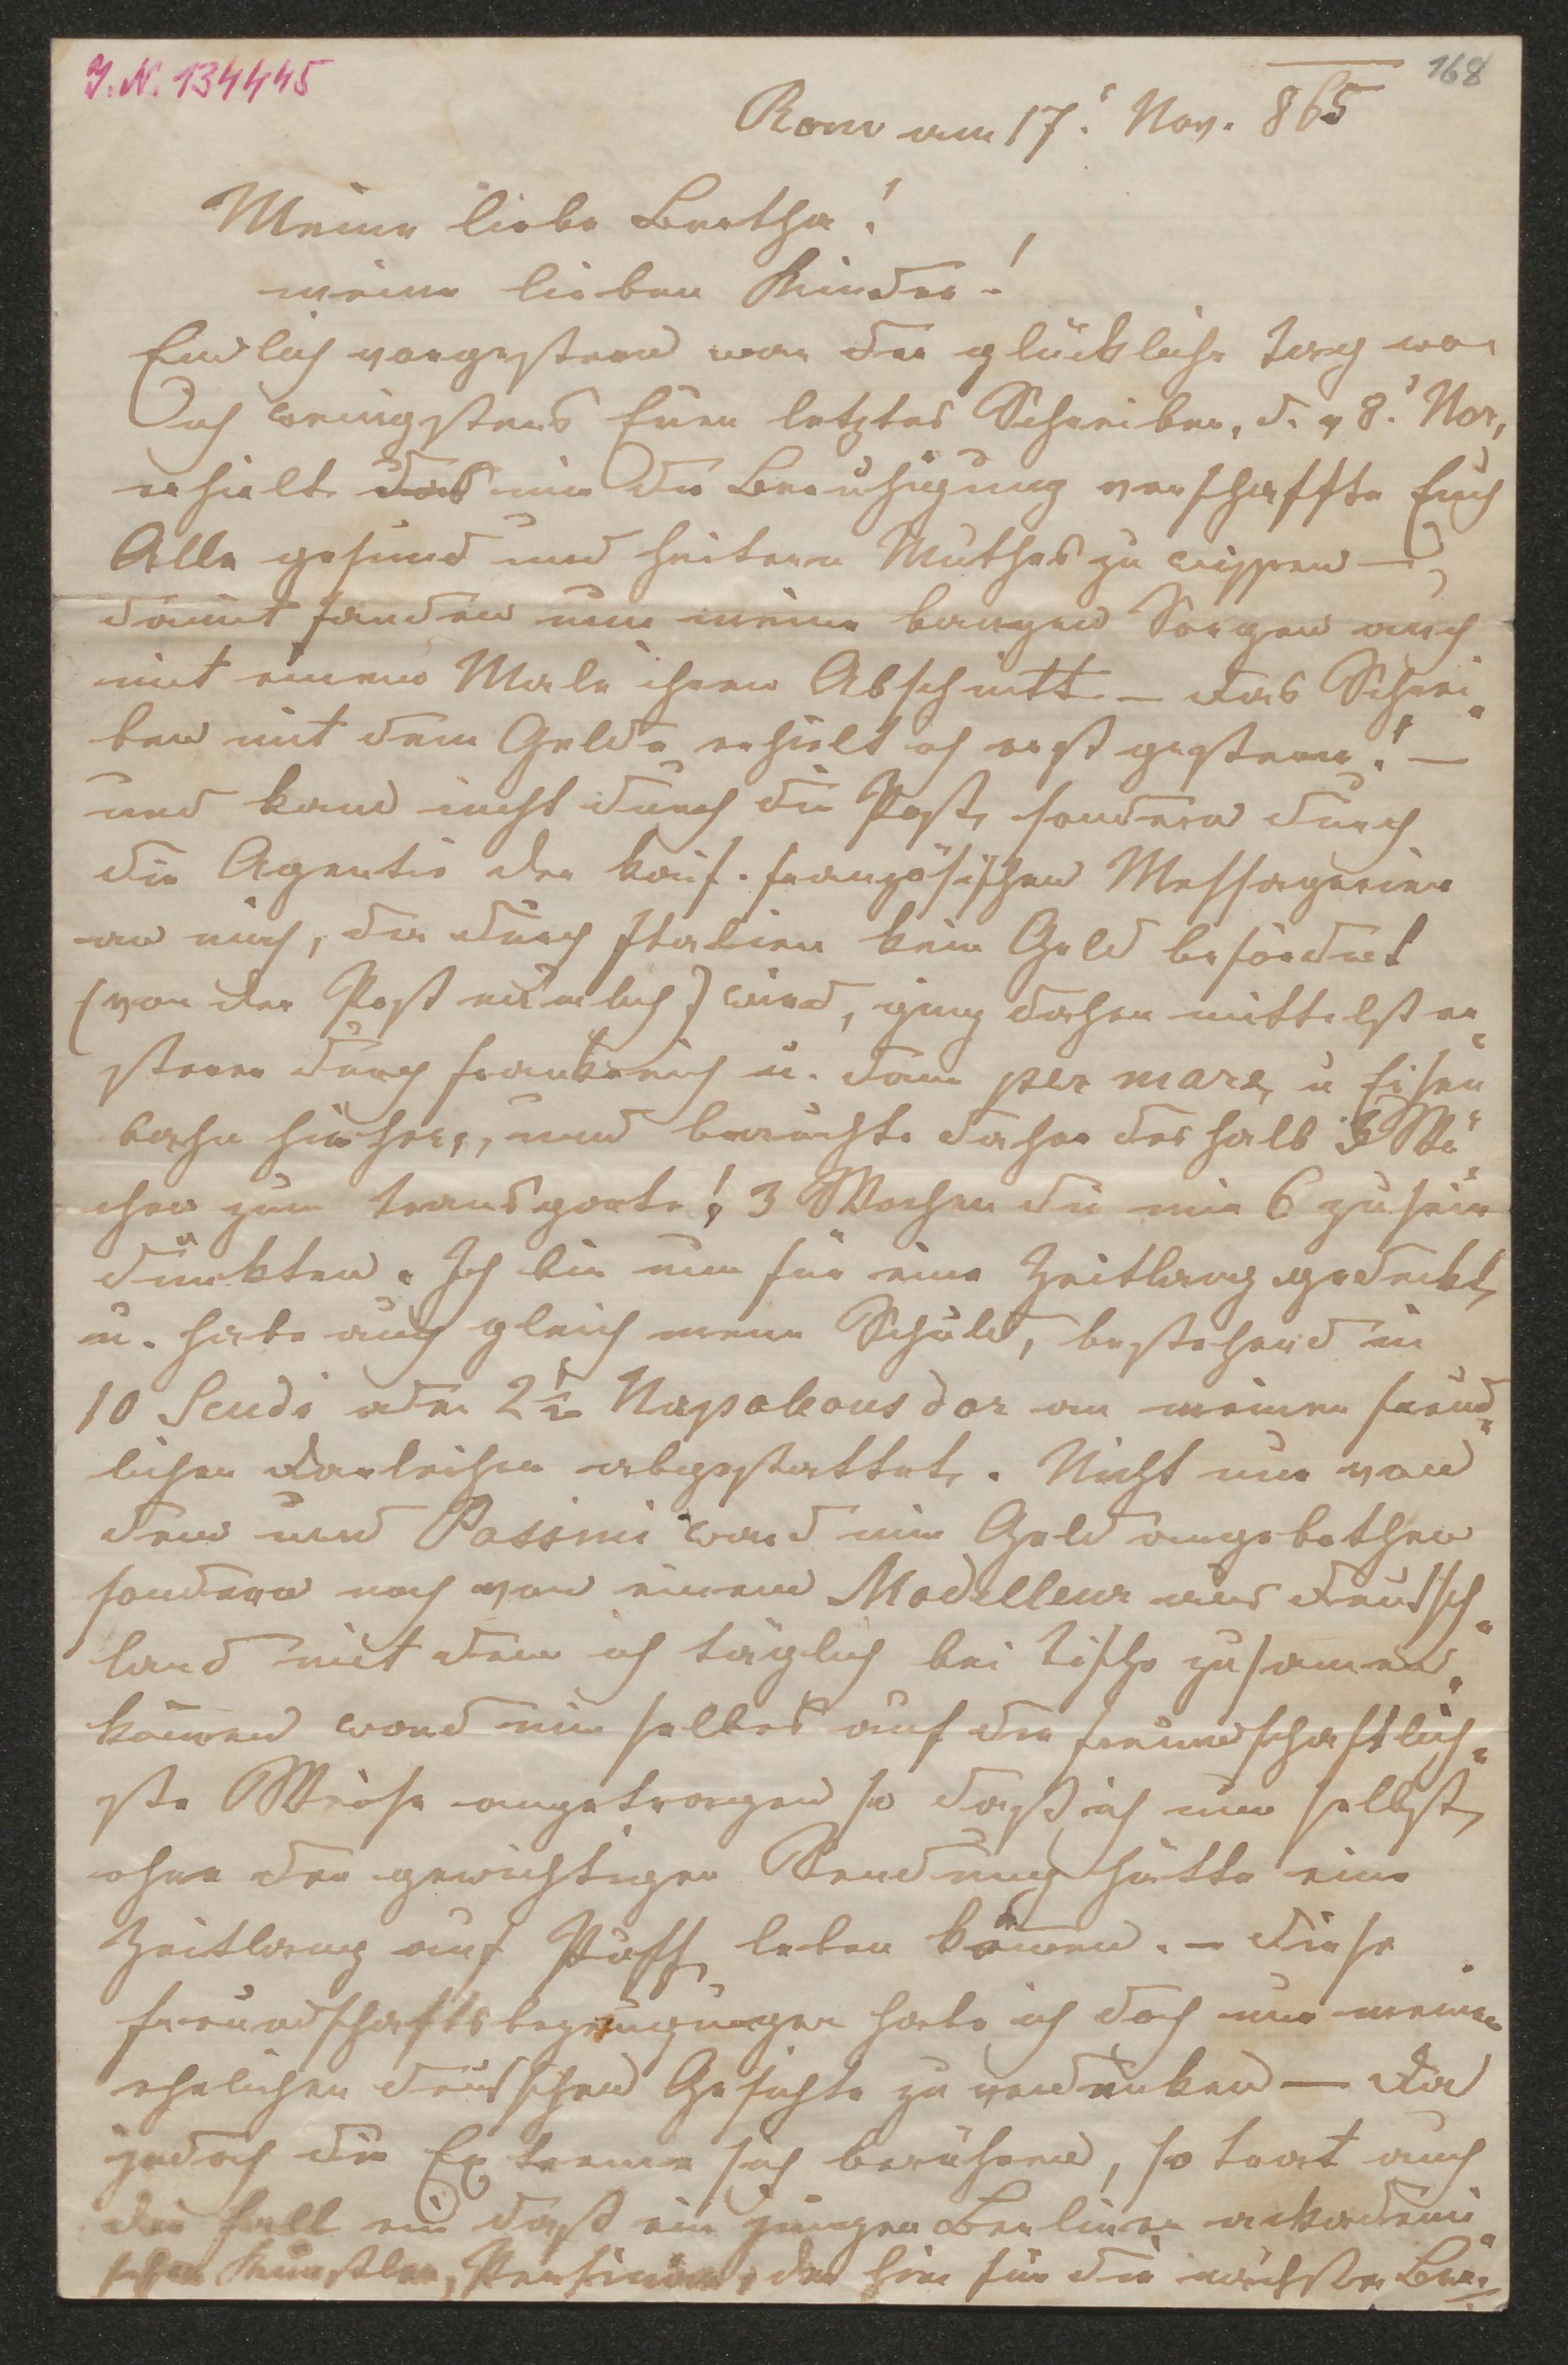 J.N. 134445
168
Rom am 17. Nov. 865
Meine liebe Bertha!
meine lieben Kinder!
Endlich vorgestern war der glückliche Tag wo
ich wenigstens Euer letztes Schreiben, d. v 8. Nov,
erhielt das mir die Beruhigung verschaffte Euch
Alle gesund und heitern Muthes zu wissen –,
damit fanden nun meine bangen Sorgen auch
mit einem Male ihren Abschnitt – das Schrei„
ben mit dem Gelde erhielt ich erst gestern! –
und kam nicht durch die Post, sondern durch
die Agentie der kais. französischen Messagerien
an mich, da durch Italien kein Geld befördert
(von der Post nämlich) wird, ging daher mittelst er„
sterer durch Frankreich u. dann per mare, u Eisen
bahn hieher, und brauchte daher deshalb 3 Wo„
chen zum Transporte! 3 Wochen die mir 6 zu sein
dünkten. Ich bin nun für eine Zeitlang gedeckt,
u. habe auch gleich meine Schuld, bestehend in
10 Scudi oder 2½ Napoleons dor an meinen freund„
lichen Darleiher abgestattet. Nicht nur von
dem und Passini ward mir Geld angebothen
sondern noch von einem Modelleur aus Deutsch„
land mit dem ich täglich bei Tische zusamen„
komen ward mir selbes auf die freundschaftlich„
ste Weise angetragen so daß ich nun selbst,
ohne der gewichtigen Sendung hätte eine
Zeitlang auf Puff leben könen. – Diese
Freundschaftsbezeugungen habe ich doch nur meinem
ehrlichen deutschen Gesichte zu verdanken – Da
jedoch die Extreme sich berühren, so trat auch
der Fall ein daß ein junger Berliner akademi„
scher Künstler, Pensionär, der hier für die nächsten